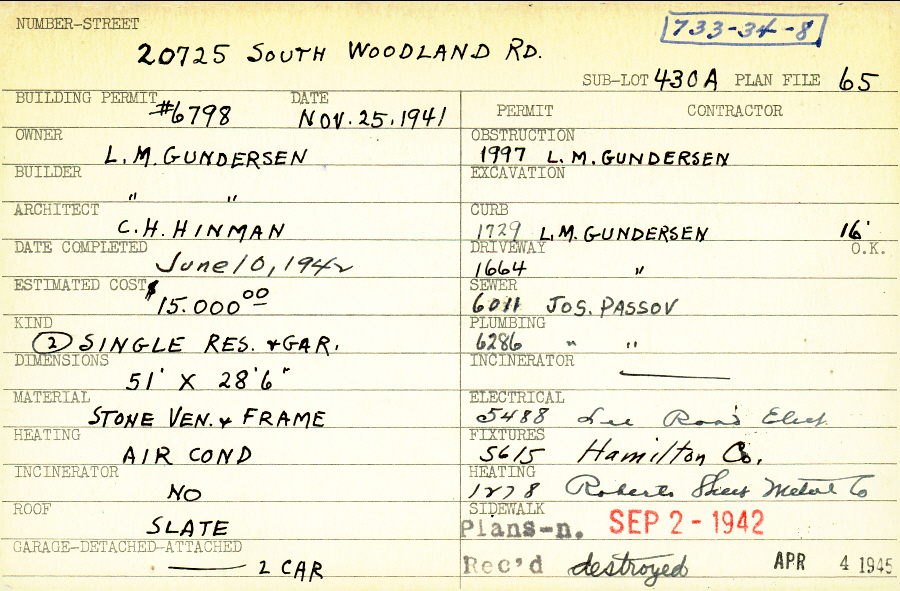 NUMBER-STREET
733-34-8
20725 SOUTH WOODLAND RD.
SUB-LOT 430A PLAN FILE 65
BUILDING PERMIT #6798 DATE NOV. 25, 1941
OWNER L. M. GUNDERSEN
BUILDER " "
ARCHITECT C. H. HINMAN
DATE COMPLETED June 10, 1942
ESTIMATED COST $15.000 00
KIND (2) SINGLE RES. & GAR.
DIMENSIONS 51' X 28'6"
MATERIAL STONE VEN. & FRAME
HEATING AIR COND
INCINERATOR NO
ROOF SLATE
GARAGE-DETACHED-ATTACHED
2 CAR
PERMIT CONTRACTOR
OBSTRUCTION 1997 L. M. GUNDERSEN
EXCAVATION
CURB 1729 L.M. GUNDERSEN 16'
DRIVEWAY 1664 " O.K.
SEWER 6011 JOS. PASSOV
PLUMBING 6286 " "
INCINERATOR
ELECTRICAL 5488 Lee Road Elect.
FIXTURES 5615 Hamilton Co.
HEATING 1278 Roberts Sheet Metal Co
SIDEWALK
Plans-n. SEP 2 - 1942
Rec'd destroyed APR 4 1945